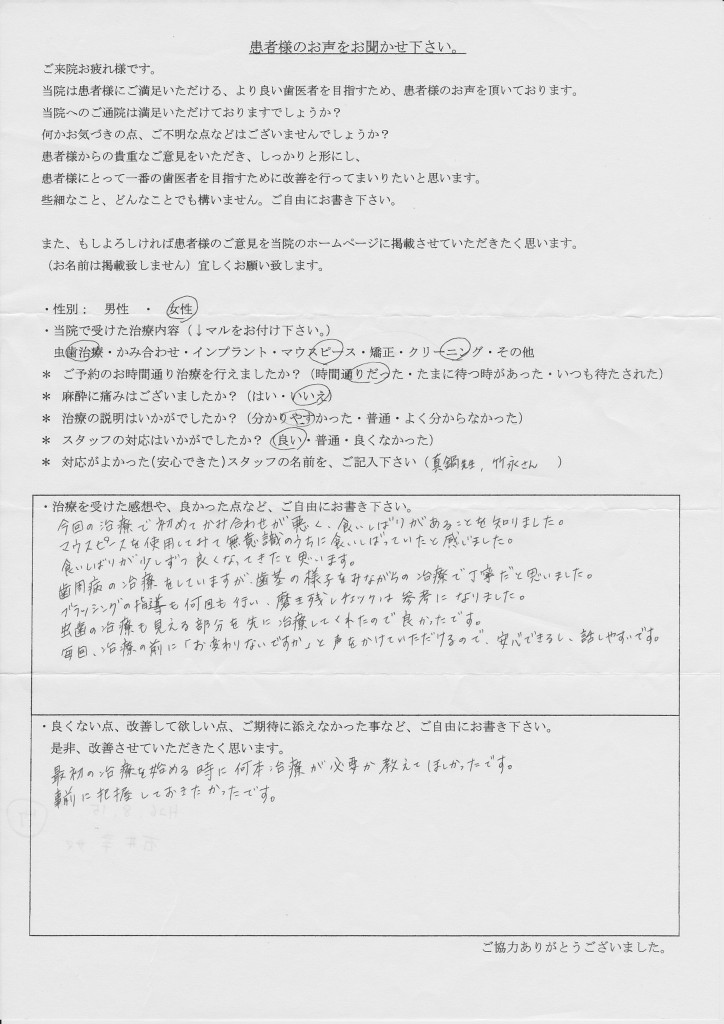 患者様のお声をお聞かせ下さい。
ご来院お疲れ様です。
当院は患者様にご満足いただける、より良い歯医者を目指すため、患者様のお声を頂いております。
当院へのご通院は満足いただけておりますでしょうか？
何かお気づきの点、ご不明な点などはございませんでしょうか？
患者様からの貴重なご意見をいただき、しっかりと形にし、
患者様にとって一番の歯医者を目指すために改善を行ってまいりたいと思います。
些細なこと、どんなことでも構いません。ご自由にお書き下さい。
また、もしよろしければ患者様のご意見を当院のホームページに掲載させていただきたく思います。
（お名前は掲載致しません）宜しくお願い致します。
・性別； 男性 ・ 女性
・当院で受けた治療内容（↓マルをお付け下さい。）
虫歯治療・かみ合わせ・インプラント・マウスピース・矯正・クリーニング・その他
＊ ご予約のお時間通り治療を行えましたか？（時間通りだった・たまに待つ時があった・いつも待たされた）
＊ 麻酔に痛みはございましたか？（はい・いいえ）
＊ 治療の説明はいかがでしたか？（分かりやすかった・普通・よく分からなかった）
＊ スタッフの対応はいかがでしたか？（良い・普通・良くなかった）
＊ 対応がよかった(安心できた)スタッフの名前を、ご記入下さい（真鍋先生，竹永さん ）
・治療を受けた感想や、良かった点など、ご自由にお書き下さい。
今回の治療で初めてかみ合わせが悪く、食いしばりがあることを知りました。
マウスピースを使用してみて無意識のうちに食いしばっていたと感じました。
食いしばりが少しずつ良くなってきたと思います。
歯周病の治療をしていますが、歯茎の様子をみながらの治療で丁寧だと思いました。
ブラッシングの指導も何回も行い、磨き残しチェックは参考になりました。
虫歯の治療も見える部分を先に治療してくれたので良かったです。
毎回、治療の前に「お変わりないですか」と声をかけていただけるので、安心できるし、話しやすいです。
・良くない点、改善して欲しい点、ご期待に添えなかった事など、ご自由にお書き下さい。
是非、改善させていただきたく思います。
最初の治療を始める時に何本治療が必要か教えてほしかったです。
事前に把握しておきたかったです。
ご協力ありがとうございました。